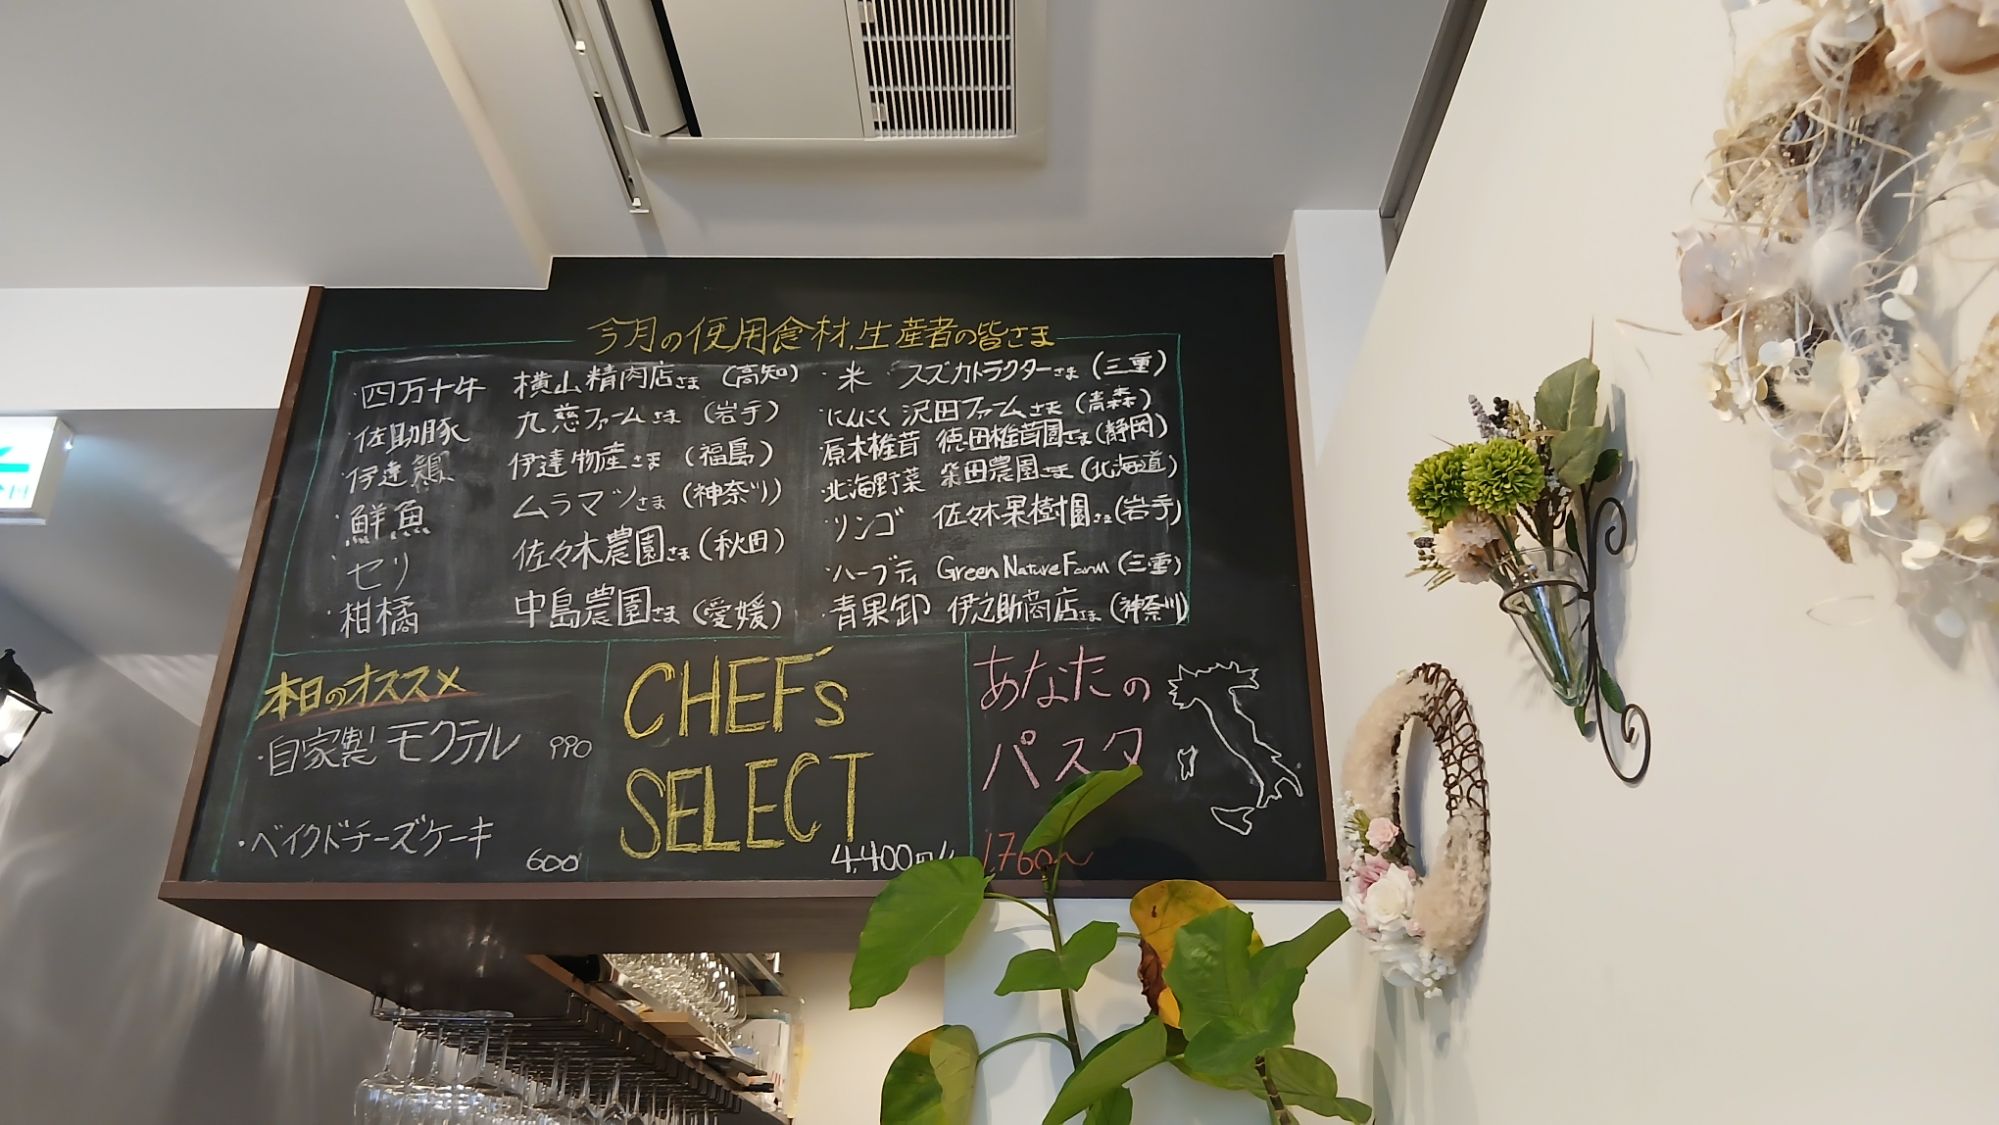 今月の使用食材、生産者の皆さま
・四万十牛 横山精肉店さま (高知)
・佐助豚 九慈ファームさま (岩手)
・伊達鶏 伊達物産さま (福島)
・鮮魚 ムラマツさま (神奈川)
・セリ 佐々木農園さま (秋田)
・柑橘 中島農園さま (愛媛)
・米 スズカトラクターさま (三重)
・にんにく 沢田ファームさま (青森)
原木椎茸 徳田椎茸園さま (静岡)
・北海野菜 柴田農園さま (北海道)
・リンゴ 佐々木果樹園さま (岩手)
・ハーブティ Green Nature Farm (三重)
・青果卸 伊之助商店さま (神奈川)
本日のオススメ
・自家製モクテル 990
・ベイクドチーズケーキ 600
CHEF's
SELECT
4,400円/
あなたの
パスタ
1,760〜